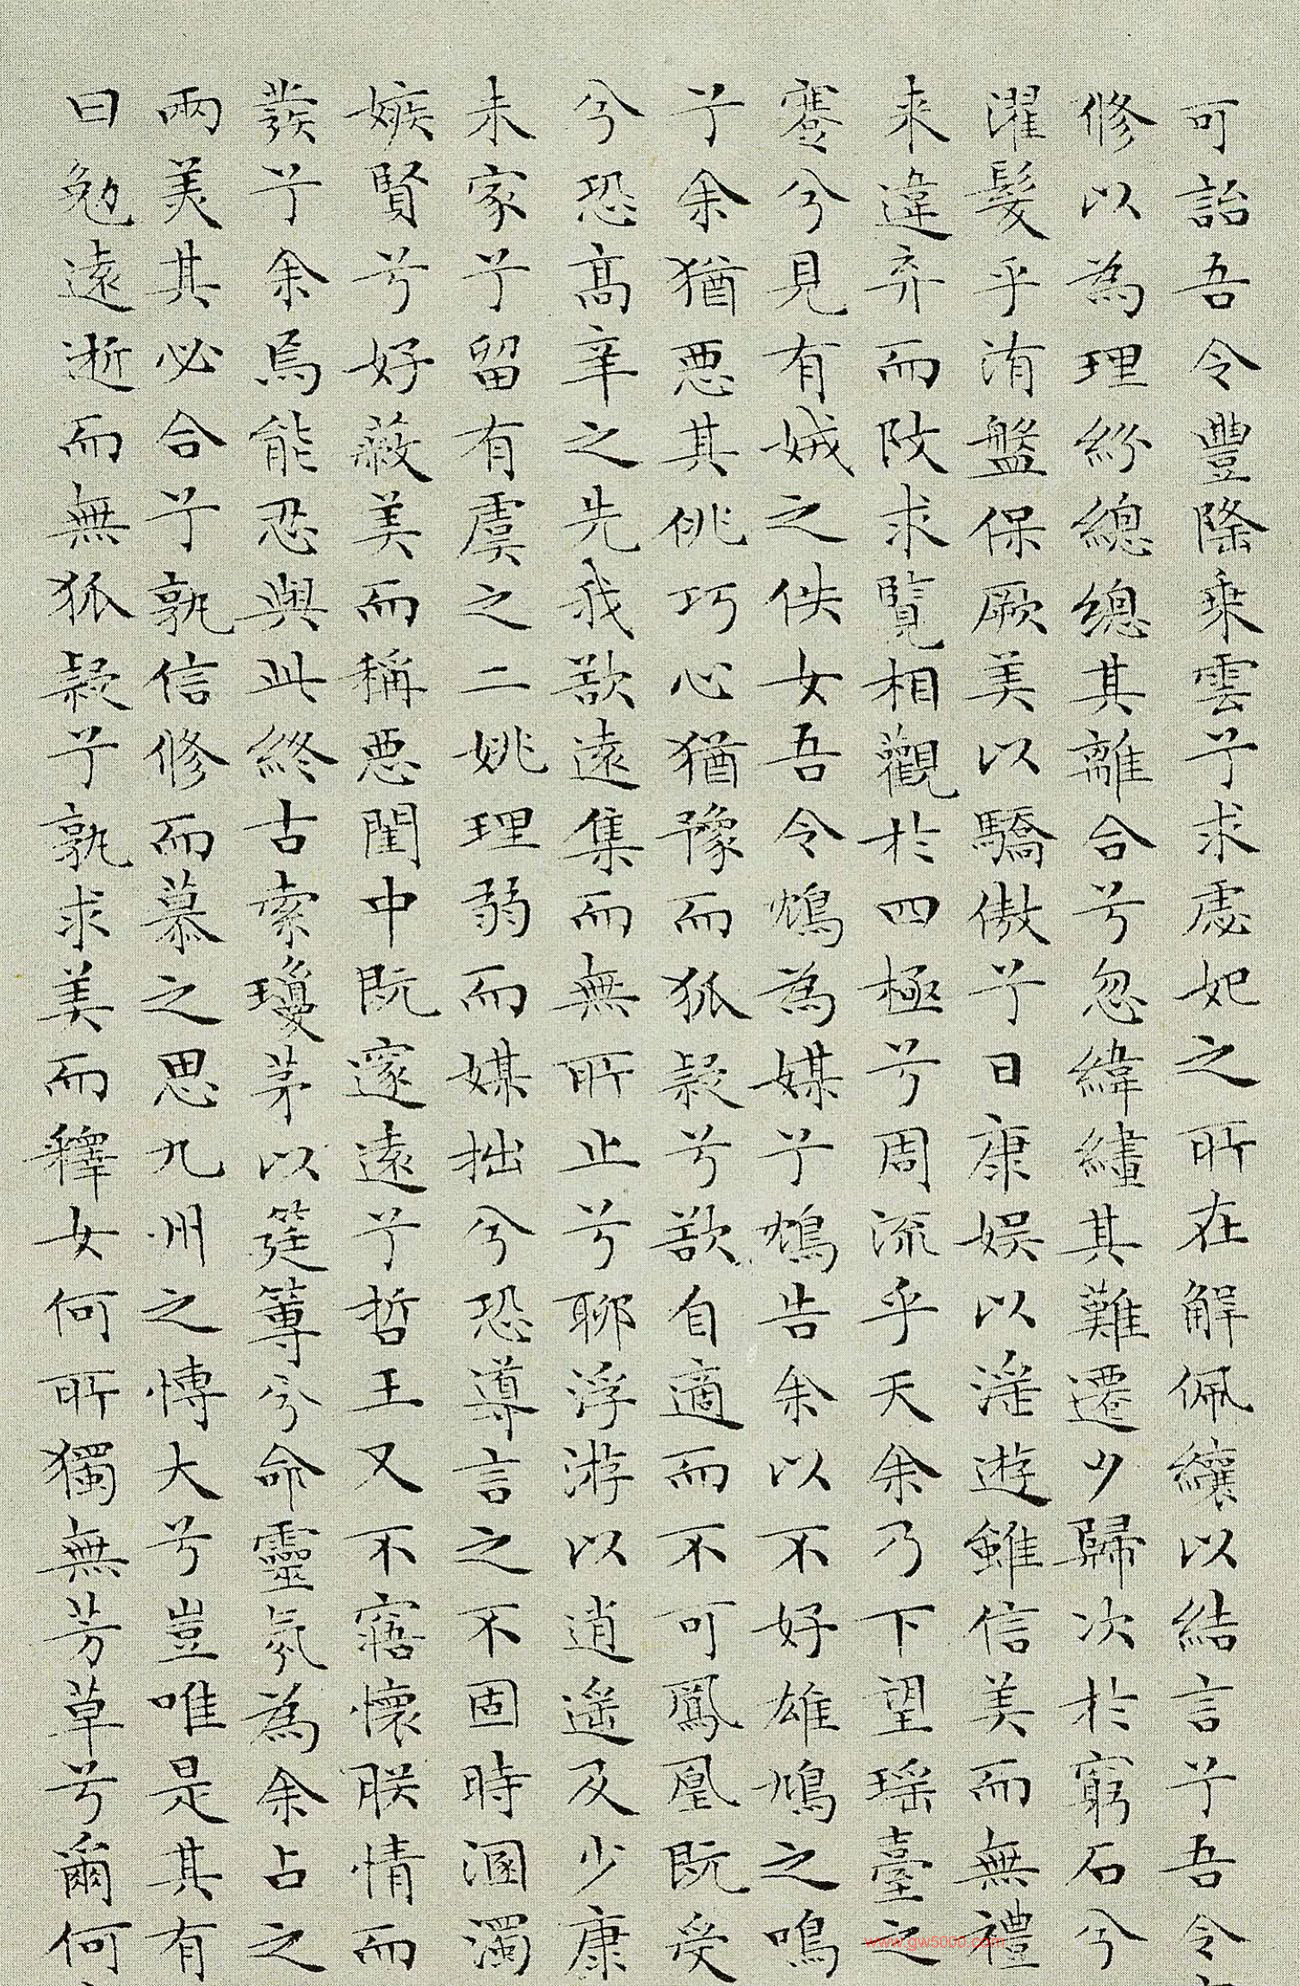 可詒吾令豐隆乘雲兮求虙妃之所在解佩纕以結言兮吾令
修以為理紛總總其離合兮忽緯繣其難遷夕歸次於窮石兮
濯髮乎洧盤保厥美以驕傲兮日康娱以淫遊雖信美而無禮
来違弃而改求覽相觀於四極兮周流乎天余乃下望瑶臺之
蹇兮見有娀之佚女吾令鴆為媒兮鴆告余以不好雄鳩之鳴
兮余猶惡其佻巧心猶豫而狐疑兮欲自適而不可鳳凰既受
兮恐高辛之先我欲遠集而無所止兮聊浮游以逍遥及少康
未家兮留有虞之二姚理弱而媒拙兮恐導言之不固時溷濁
嫉賢兮好蔽美而稱惡閨中既邃遠兮哲王又不寤懷朕情而
發兮余焉能忍與此終古索瓊茅以筳篿兮命靈氛為余占之
兩美其必合兮孰信修而慕之思九州之博大兮豈唯是其有
曰勉遠逝而無狐疑兮孰求美而釋女何所獨無芳草兮爾何
www.gw5000.com